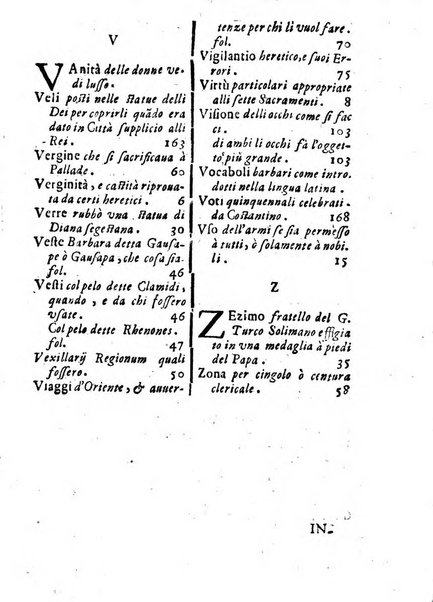 V
VAnità delle donne ve
di lusso.
Veli posti nelle statue delli
Dei per coprirli quãdo era
dato in Città supplicio alli
Rei. 163
Vergine che si sacrificaua à
Pallade. 60
Verginità, e castità riproua
ta da certi heretici. 6
Verre rubbò vna statua di
Diana segestana. 30
Veste Barbara detta Gausa-
pe ò Gausapa, che cosa sia
fol. 46
Vesti col pelo dette Clamidi,
quando, e da chi fossero
vsate. 46
Col pelo dette Rhenones.
fol. 47
Vexillarÿ Regionum quali
fossero. 50
Viaggi d'Oriente, & auuer-
tenze per chi li vuol fare.
fol. 70
Vigilantio heretico, e suoi Er
rori. 75
Virtù particolari appropriate
alli sette Sacramenti. 8
Visione delli occhi come si fac
ci. 103
di ambi li occhi fà l'ogget-
to più grande. 103
Vocaboli barbari come intro
dotti nella lingua latina.
Voti quinquennali celebrati
da Costantino. 168
Vso dell'armi se sia permesso
à tutti, ò solamente à nobi
li. 15
Z
ZEzimo fratello del G.
Turco Solimano effigia
to in vna medaglia à piedi
del Papa. 35
Zona per cingolo ò centura
clericale. 58
IN-